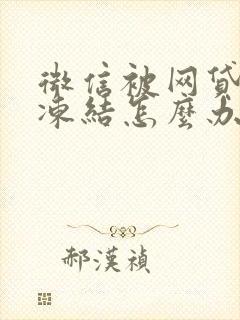 微信被网贷
凍結怎麼办
郝漢禎